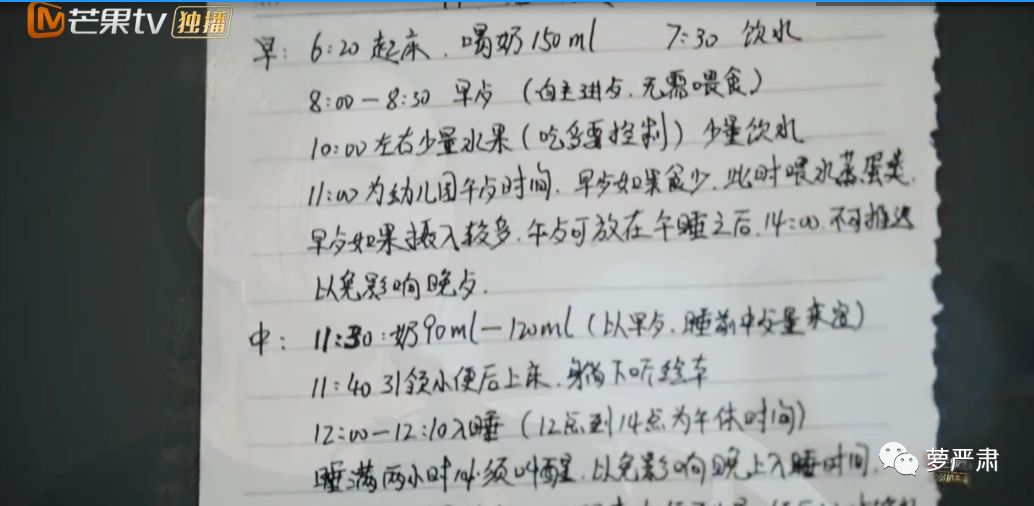 芒果tv 独播
早: 6:20 起床. 喝奶150ml 7:30 饮水
8:00—8:30 早歺 (自主进歺. 无需喂食)
10:00左右少量水果 (吃多要控制) 少量饮水
11:00为幼儿园午歺时间. 早歺如果食少. 此时喂水蒸蛋类.
早歺如果摄入较多. 午歺可放在午睡之后. 14:00. 不可推迟
以免影响晚歺.
中: 11:30:奶90ml—120ml (以早歺. 睡前中歺量来定)
11:40 引领小便后上床. 身躺下听绘本
12:00—12:10入睡 (12点到14点为午休时间)
睡满两小时必须叫醒. 以免影响晚上入睡时间.
萝严肃